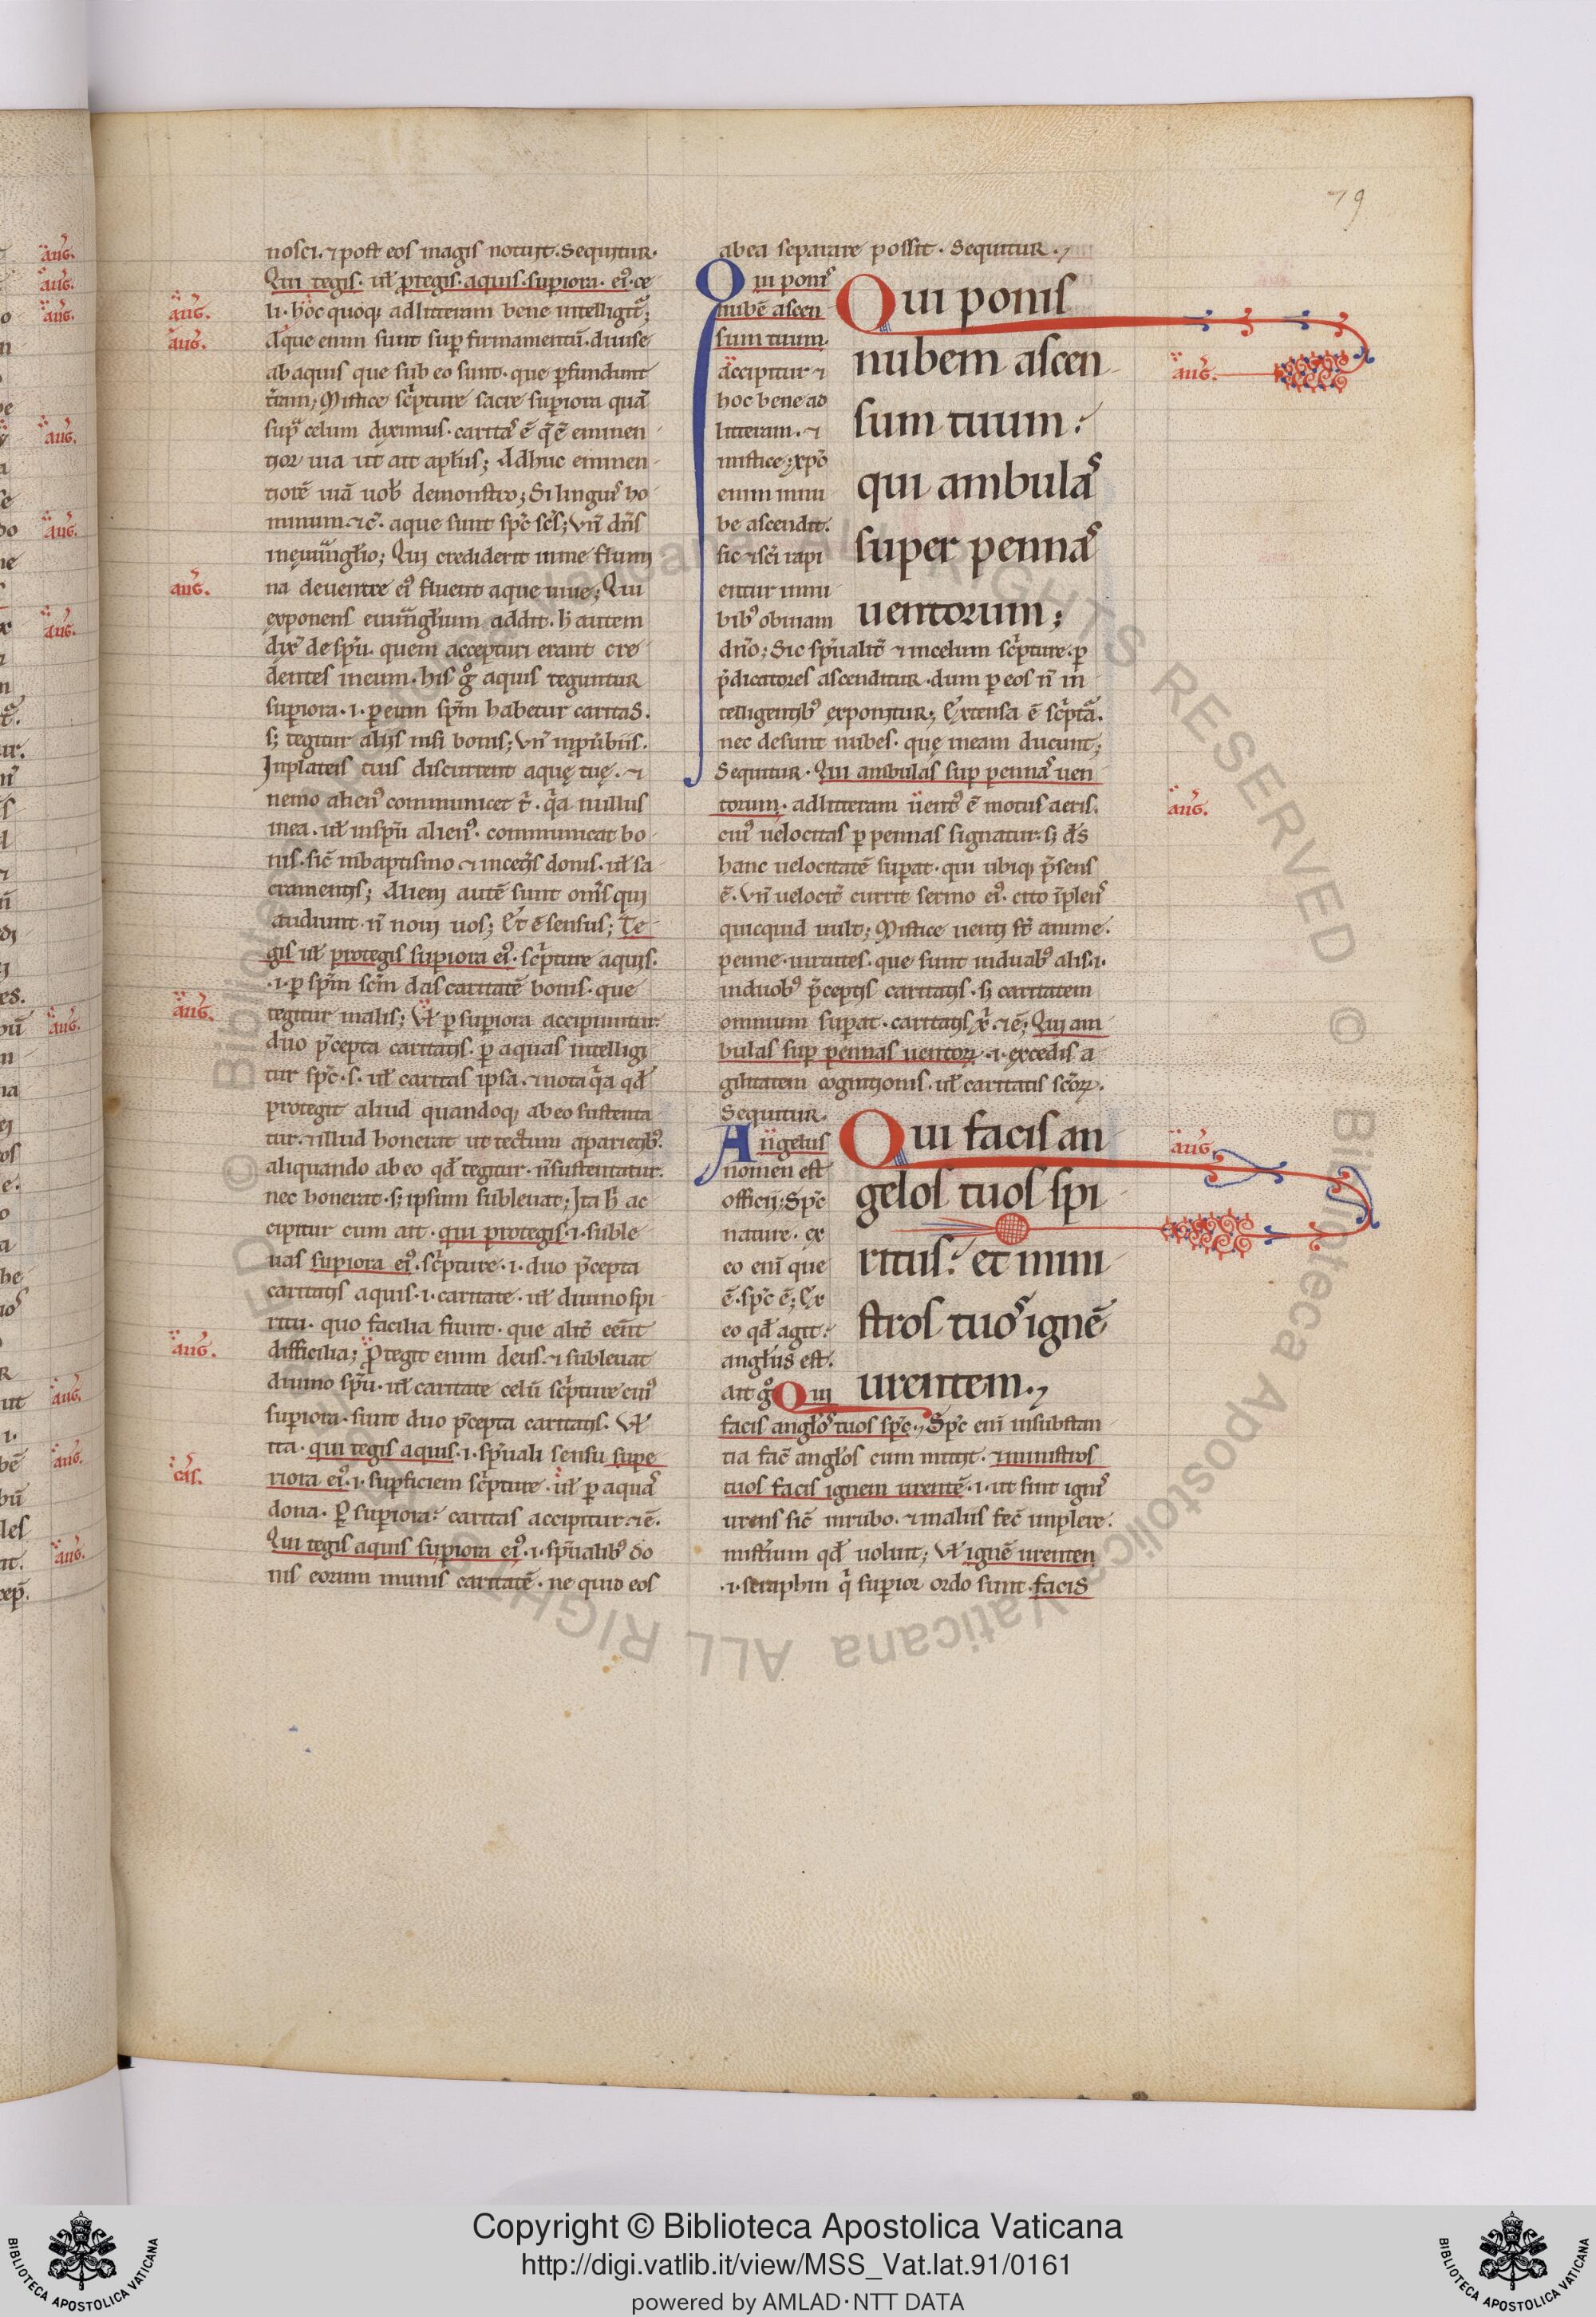 79
nosci. ⁊ post eos magis notuit. Sequitur.
Qui tegis. ul̄ ꝑtegis. aquis. suꝑiora. eiꝰ. ce
li. hoc quoqꝫ ad litteram bene intelligit̃;
Aq̃ue enim sunt suꝑ firmamentū. diuise
ab aquis que sub eo sunt. que ꝑfundunt
t̃ram; Mistice sc̃pture sacre suꝑiora quā
sup̃ celum diximus. caritas ē q̃ ē eminen
tior uia ut ait apl̃us; Adhuc eminen
tiorē uiā uob̃ demonstro; Si linguis ho
minum ⁊c̃. aque sunt sp̃c sc̃s; Vñ dñs
in euuãgl̃io; Qui crediderit in me flumi
na de uentre eiꝰ fluent aque uiue; Qui
exponens euuãgl̃ium addit. h̃ autem
dix̃ de sp̃u. quem accepturi erant cre
dentes in eum. his g̊ aquis teguntur
suꝑiora .i. ꝑ eum sp̃m habetur caritas.
sꝫ tegitur alijs nisi bonis; Vñ in ꝓũbiis.
In plateis tuis discurrent aquę tuę. ⁊
nemo alienꝰ communicet t̃. q̃a nullus
mea. ul̄ in sp̃u alienꝰ. communicat bo
nis. sic̃ in baptismo ⁊ in cet̃is donis. ul̄ sa
cramentis; Alieni autē sunt om̃s qui
audiunt. ñ noui uos; Et ē sensus; Te
gis ul̄ protegis suꝑiora eiꝰ. sc̃pture aquis.
.i. ꝑ sp̃m sc̃m das caritatē bonis. que
tegitur malis; Vl̄ ꝑ suꝑiora accipiuntur.
duo p̃cepta caritatis. ꝑ aquas intelligi
tur sp̃c .s. ul̄ caritas ipsa. ⁊ nota q̃a qd̄
protegit aliud quandoqꝫ ab eo sustenta
tur. ⁊ illud honerat ut tectum a parietibꝰ.
aliquando ab eo qd̄ tegitur. ñ sustentatur.
nec honerat. sꝫ ipsum subleuat; Ita h̃ ac
cipitur cum ait. qui protegis .i. suble
uas suꝑiora eiꝰ. sc̃pture .i. duo p̃cepta
caritatis aquis .i. caritate. ul̄ diuino spi
ritu. quo facilia fiunt. que alit̃ eēnt
difficilia; Protegit enim deus. ⁊ subleuat
diuino sp̃u. ul̄ caritate celū sc̃pture cuiꝰ
suꝑiora. sunt duo p̃cepta caritatis. Vl̄
ita. qui tegis aquis .i. sp̃uali sensu supe
riora eiꝰ .i. suꝑficiem sc̃pture. ul̄ ꝑ aquas
dona. Ꝑ suꝑiora. caritas accipitur. ⁊ ē.
Qui tegis aquis suꝑiora eiꝰ .i. sp̃ualibꝰ do
nis eorum munis caritatē. ne quid eos
ab ea separare possit. Sequitur.
Qui ponis
nubē ascen
sum tuum.
Accipitur ⁊
hoc bene ad
litteram. ⁊
mistice; xp̃c
enim in nu
be ascendit.
sic ⁊ sc̃i rapi
entur in nu
bibꝰ obuiam
dño; Sic sp̃ualit̃ ⁊ in celum sc̃pture. ꝑ
p̃dicatores ascenditur. dum ꝑ eos ñ in
telligentibꝰ exponitur; Extensa ē sc̃ptã.
nec desunt nubes. quę in eam ducunt;
Sequitur. Qui ambulas suꝑ pennas uen
torum. ad litteram uentꝰ ē motus aeris.
cuiꝰ uelocitas ꝑ pennas signatur. sꝫ ds̃
hanc uelocitatē suꝑat. qui ubiqꝫ p̃sens
ē. Vñ uelocit̃ currit sermo eiꝰ. cito īplens
quicquid uult; Mistice uenti st̃ anime.
penne. uirtutes. que sunt in duabꝰ alis .i.
in duobꝰ p̃ceptis caritatis. sꝫ caritatem
omnium suꝑat. caritatis xr̃ ⁊ ē; Qui am
bulas suꝑ pennas uentoꝝ .i. excedis a
gilitatem cognitionis. ul̄ caritatis sc̃oꝝ.
Sequitur.
Angelus
nomen est
officii; Sp̃c
nature. ex
eo enī que
ē. sp̃c ē; Ex
eo qd̄ agit.
angl̃us est.
ait g̊ Qui
facis angl̃os tuos sp̃c. Sp̃c enī in substan
tia fac̃ angl̃os cum mittit. ⁊ ministros
tuos facis ignem urentē .i. ut sint ignis
urens sic̃ in rubo. ⁊ malus fec̃ implere.
mist̃ium qd̄ uoluit; Vl̄ ignē urenten
.i. seraphin q̃ superior ordo sunt. facis
Qui ponis
nubem ascen
sum tuum:
qui ambulas
super pennas
uentorum;
Qui facis an
gelos tuos spi
ritus: et mini
stros tuos ignē
urentem.
aug.
aug.
aug.
aug.
aug.
cas.
aug.
aug.
aug.
Copyright © Biblioteca Apostolica Vaticana
http://digi.vatlib.it/view/MSS_Vat.lat.91/0161
powered by AMLAD·NTT DATA
BIBLIOTECA APOSTOLICA VATICANA
BIBLIOTECA APOSTOLICA VATICANA
© Biblioteca Apostolica Vaticana ALL RIGHTS RESERVED © Biblioteca Apostolica Vaticana ALL RIGHTS RESERVED